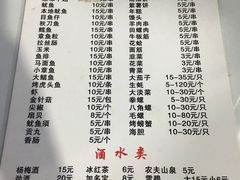 鱿鱼 10元/串 紫薯饼 5元/串
本地鱿鱼 10元/串 年糕 5元/串
目鱼仔 10元/串 馒头 5元/串
秋刀鱼 10元/串 羊肉串 5元/串
鳕鱼 10元/串 田螺肉 5元/串
章鱼粒 10元/串 牛板筋 5元/串
拉丝肠 10元/串 花蛤 5元/串
玉米 10元/串 花菜 5元/串
鱼排 10元/串 韭菜 5元/串
马面鱼 10元/串 土豆 5元/串
小章鱼 10元/串 青菜 5元/串
大鱿鱼 15元/串 大茄子 15-35元/只
烤虎头鱼 15元/串 生蚝 8-12元/只
虾 15元/串 扇贝 8-12元/只
金针菇 15元/份 拳螺 10-30元/只
尖椒 10元/份 八角螺 10-30元/只
扇贝 10元/串 毛螺 10-30元/只
鱿鱼须 5元/串 烤螃蟹 10-30元/只
贡丸 5元/串 海胆 10-30元/只
香肠 5元/串
酒水类
杨梅酒 15元 冰红茶 6元 农夫山泉 5元
劲酒 20元 加多宝 8元 雪碧